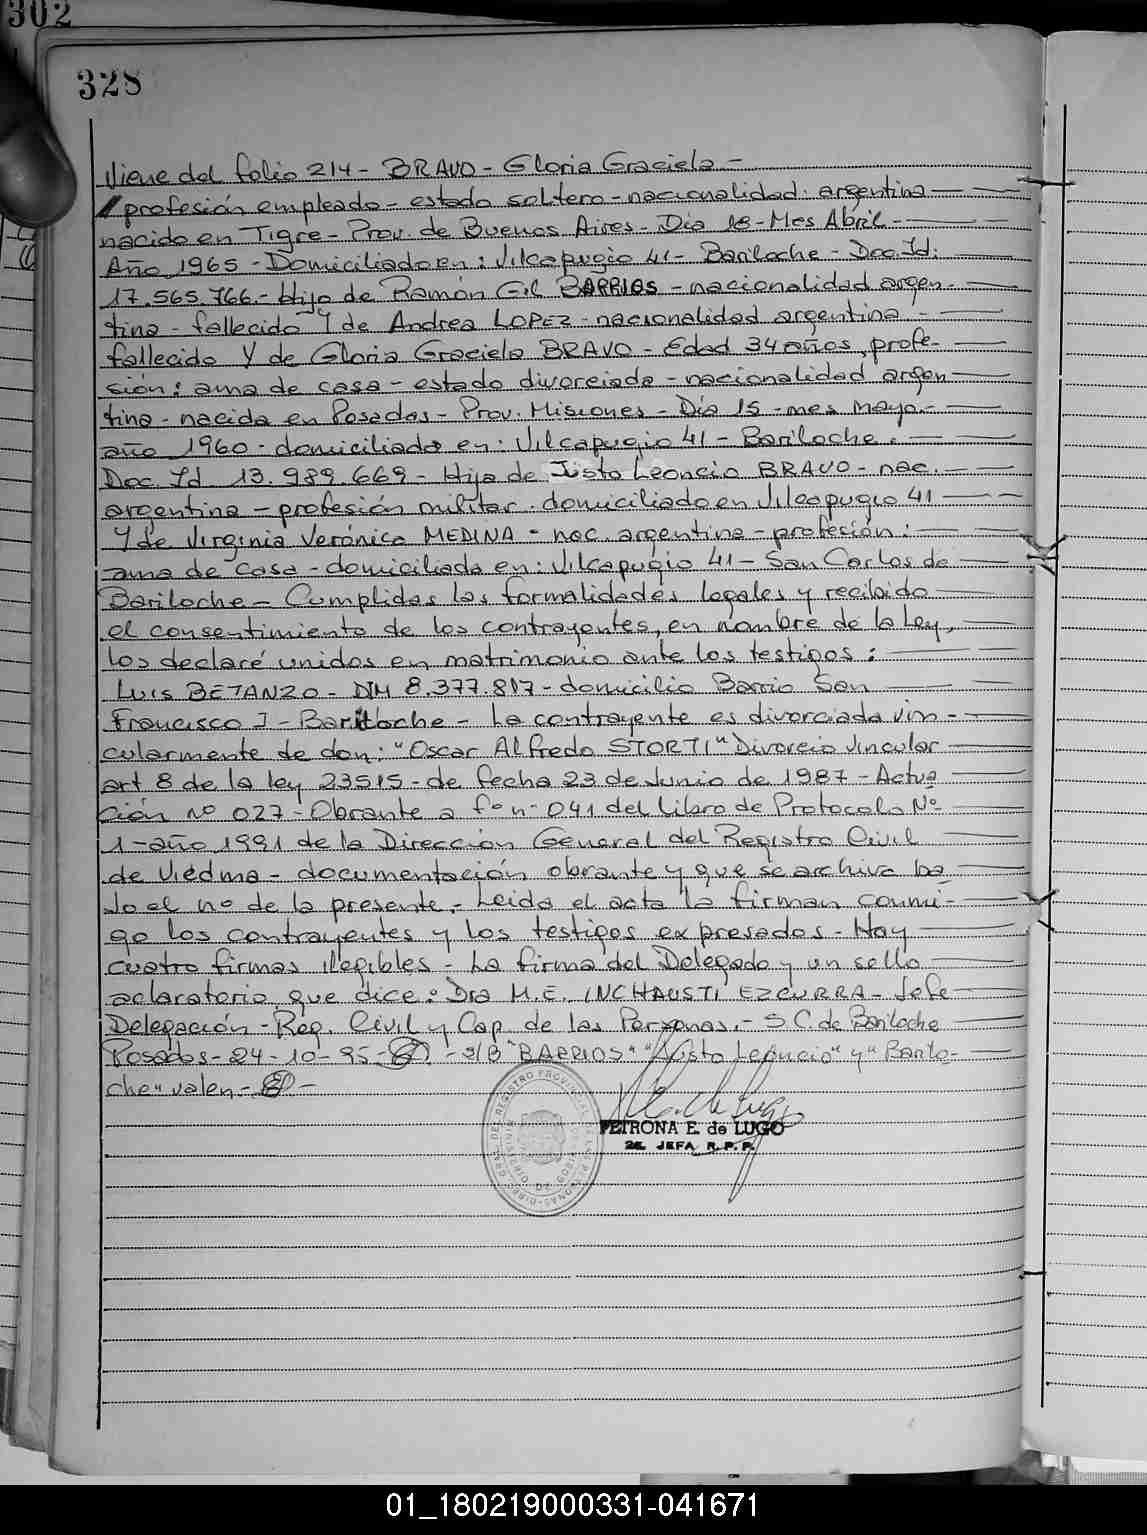 302
328
Viene del folio 214 - BRAVO - Gloria Graciela -
profesión empleado - estado soltero - nacionalidad: argentina
nacido en Tigre - Prov. de Buenos Aires - Día 18 - Mes Abril -
Año 1965 - Domiciliado en: Vilcapugio 41 - Bariloche - Doc. Id:
17.565.766 - Hijo de Ramón Gil BARRIOS - nacionalidad argen-
tina - fallecido Y de Andrea LOPEZ - nacionalidad argentina -
fallecido Y de Gloria Graciela BRAVO - Edad 34 años, profe-
sión: ama de casa - estado divorciada - nacionalidad argen
tina - nacida en Posadas - Prov. Misiones - Día 15 - mes mayo -
año 1960 - domiciliado en: Vilcapugio 41 - Bariloche.
Doc. Id 13.989.669 - Hija de Justo Leoncio BRAVO - nac.
argentina - profesión militar - domiciliado en Vilcapugio 41
Y de Virginia Verónica MEDINA - nac. argentina - profeción:
ama de casa - domiciliada en: Vilcapugio 41 - San Carlos de
Bariloche - Cumplidas las formalidades legales y recibido
el consentimiento de los contrayentes, en nombre de la Ley,
los declaré unidos en matrimonio ante los testigos:
LUIS BETANZO - DNI 8.377.817 - domicilio Barrio San
Francisco I - Bariloche - La contrayente es divorciada vin -
cularmente de don: "Oscar Alfredo STORTI" Divorcio vincular
art 8 de la ley 23515 - de fecha 23 de Junio de 1987 - Actua
ción nº 027 - Obrante a fº nº 041 del Libro de Protocolo Nº
1 - año 1991 de la Dirección General del Registro Civil
de Viedma - documentación obrante y que se archiva ba-
jo el nº de la presente. - Leida el acta la firman conmi-
go los contrayentes y los testigos expresados - Hay
cuatro firmas ilegibles - La firma del Delegado y un sello
aclaratorio que dice: Dra M.E. INCHAUSTI EZCURRA - Jefe
Delegación - Reg. Civil y Cap. de las Personas. - S.C. de Bariloche
Posadas - 24 - 10 - 95 - - S/B "BARRIOS" "Justo Leoncio" y "Barilo-
che" valen -
PETRONA E. de LUGO
JEFA R.P.P.
01_180219000331-041671